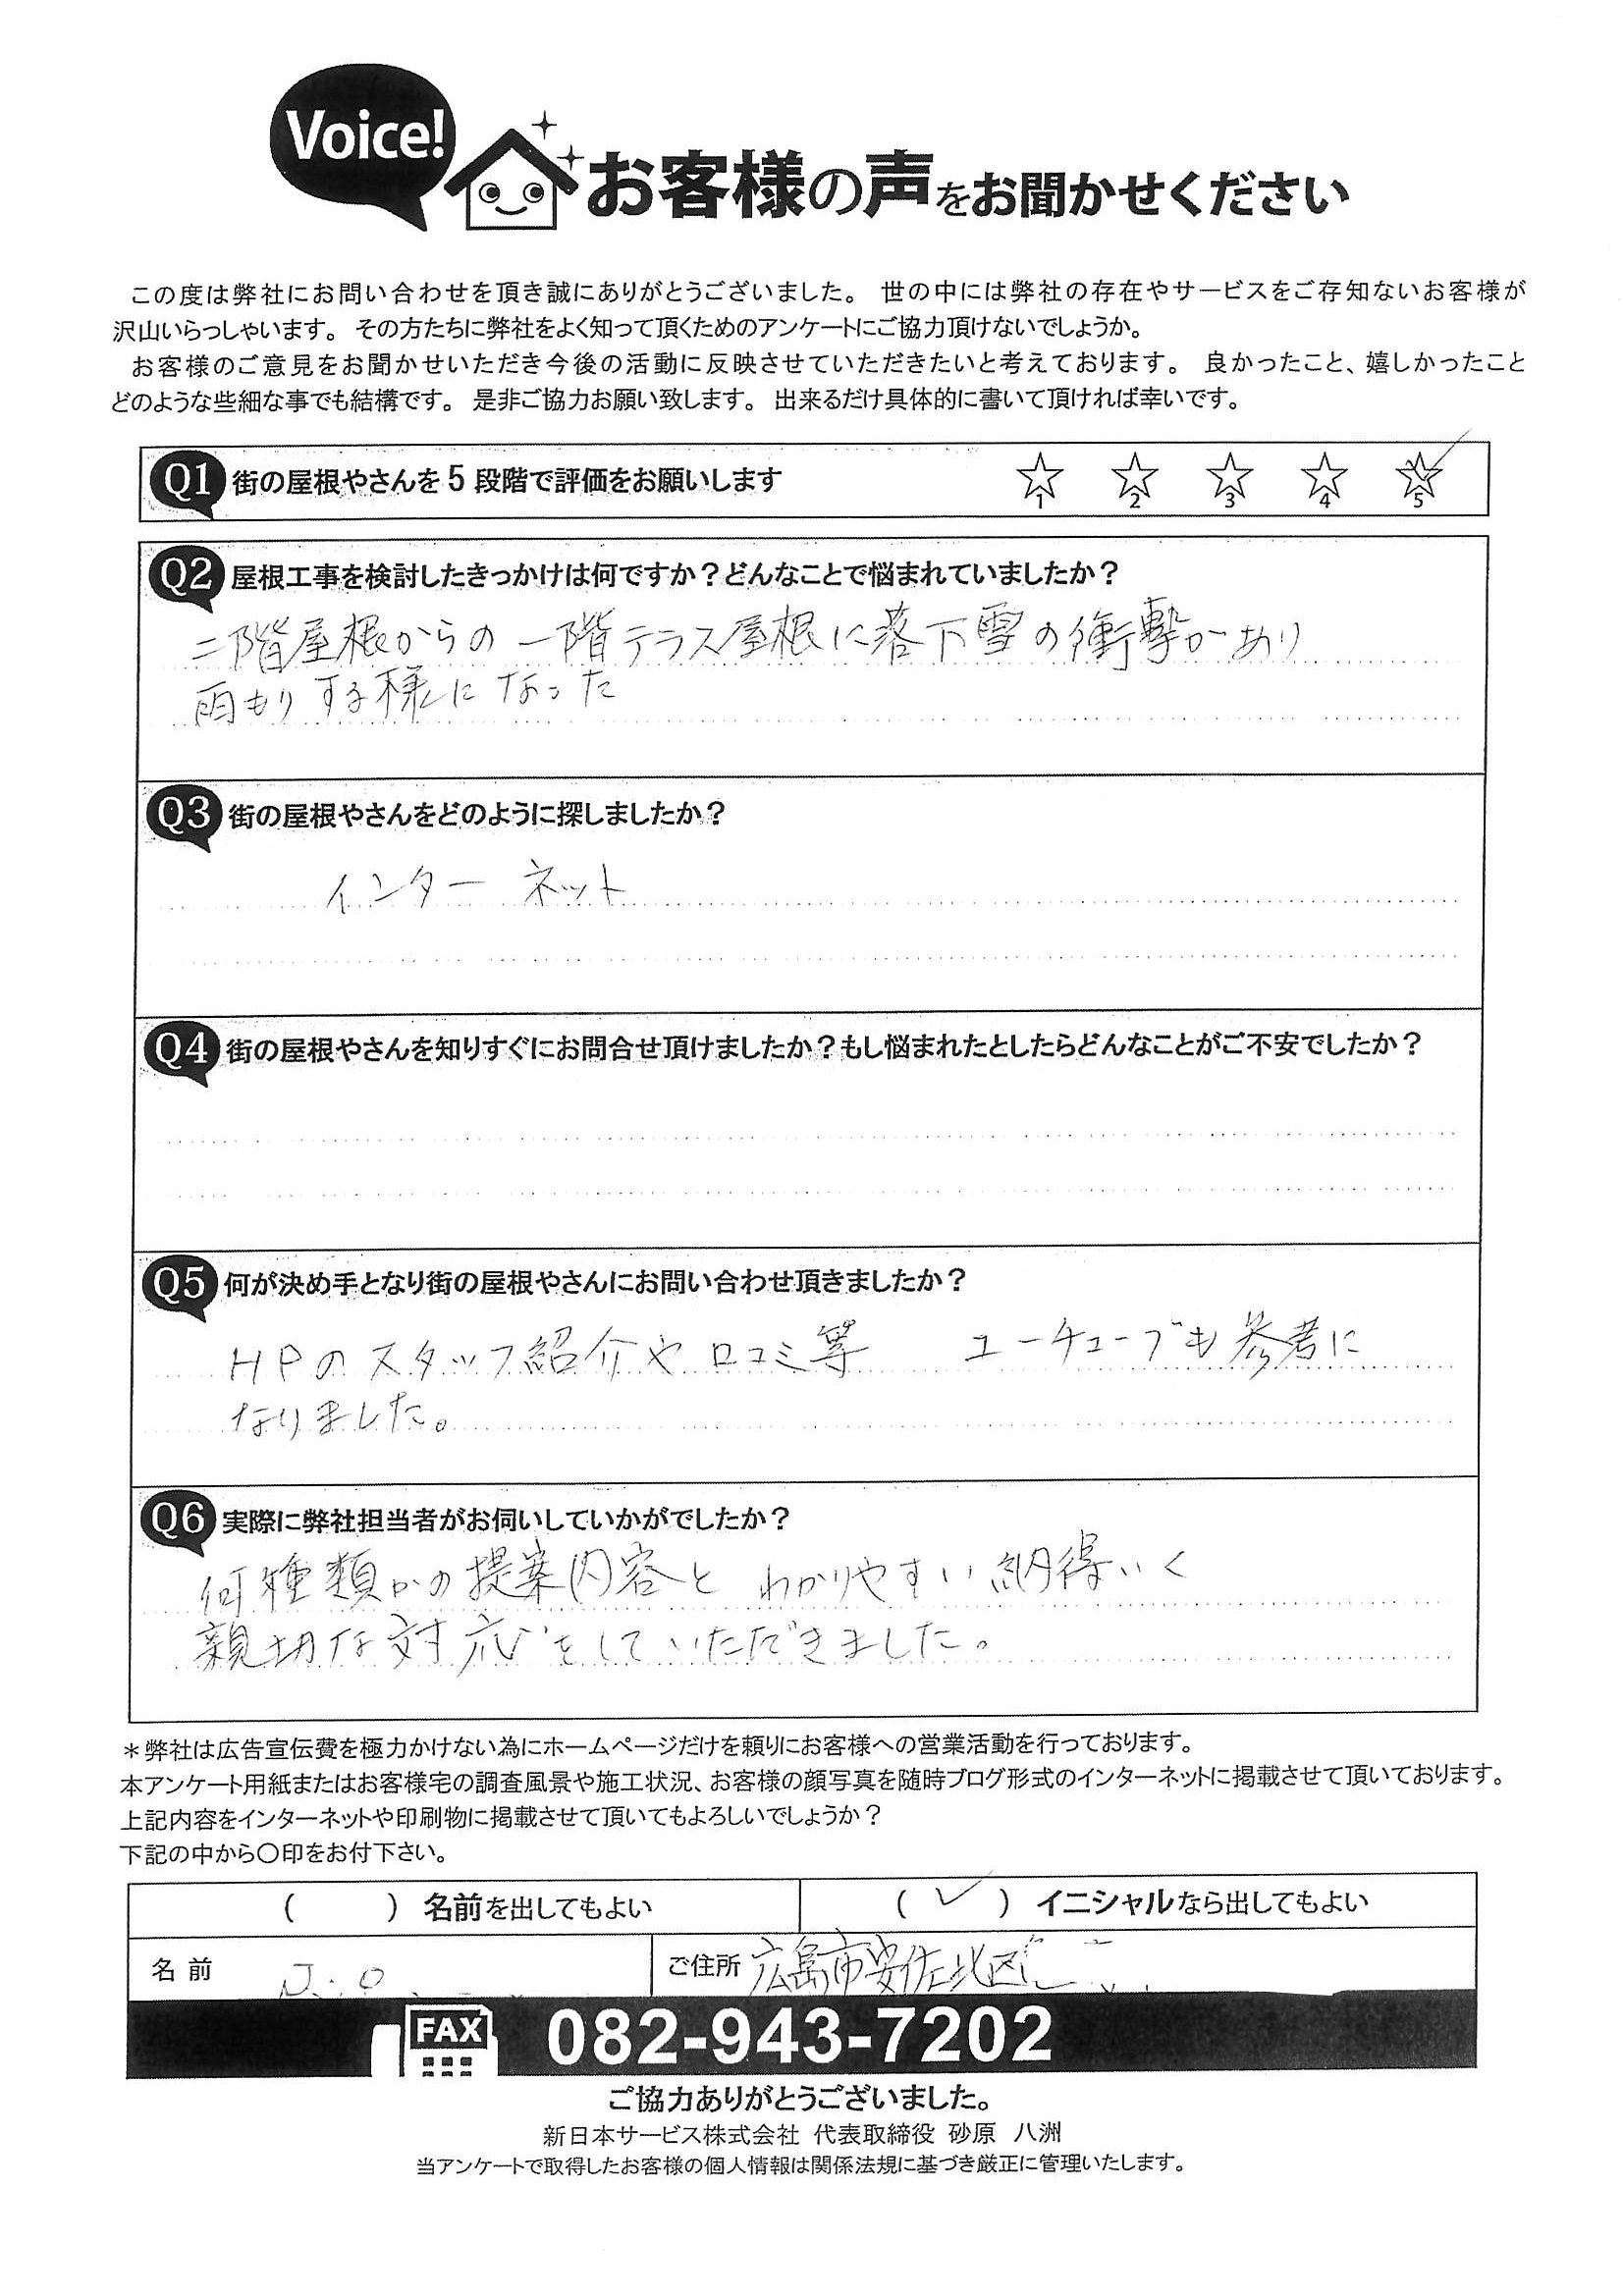 Voice!
お客様の声をお聞かせください
この度は弊社にお問い合わせを頂き誠にありがとうございました。 世の中には弊社の存在やサービスをご存知ないお客様が
沢山いらっしゃいます。 その方たちに弊社をよく知って頂くためのアンケートにご協力頂けないでしょうか。
お客様のご意見をお聞かせいただき今後の活動に反映させていただきたいと考えております。 良かったこと、嬉しかったこと
どのような些細な事でも結構です。 是非ご協力お願い致します。 出来るだけ具体的に書いて頂ければ幸いです。
Q1 街の屋根やさんを 5 段階で評価をお願いします ☆1 ☆2 ☆3 ☆4 ☆5
Q2 屋根工事を検討したきっかけは何ですか？どんなことで悩まれていましたか？
二階屋根からの一階テラス屋根に落下雪の衝撃があり
雨もりする様になった
Q3 街の屋根やさんをどのように探しましたか？
インターネット
Q4 街の屋根やさんを知りすぐにお問合せ頂けましたか？もし悩まれたとしたらどんなことがご不安でしたか？
Q5 何が決め手となり街の屋根やさんにお問い合わせ頂きましたか？
HPのスタッフ紹介や口コミ等 ユーチューブも参考に
なりました。
Q6 実際に弊社担当者がお伺いしていかがでしたか？
何種類かの提案内容と わかりやすい納得いく
親切な対応をしていただきました。
＊弊社は広告宣伝費を極力かけない為にホームページだけを頼りにお客様への営業活動を行っております。
本アンケート用紙またはお客様宅の調査風景や施工状況、お客様の顔写真を随時ブログ形式のインターネットに掲載させて頂いております。
上記内容をインターネットや印刷物に掲載させて頂いてもよろしいでしょうか？
下記の中から〇印をお付下さい。
（　　）名前を出してもよい （✓）イニシャルなら出してもよい
名 前 ご住所 広島市安佐北区
FAX 082-943-7202
ご協力ありがとうございました。
新日本サービス株式会社 代表取締役 砂原 八洲
当アンケートで取得したお客様の個人情報は関係法規に基づき厳正に管理いたします。